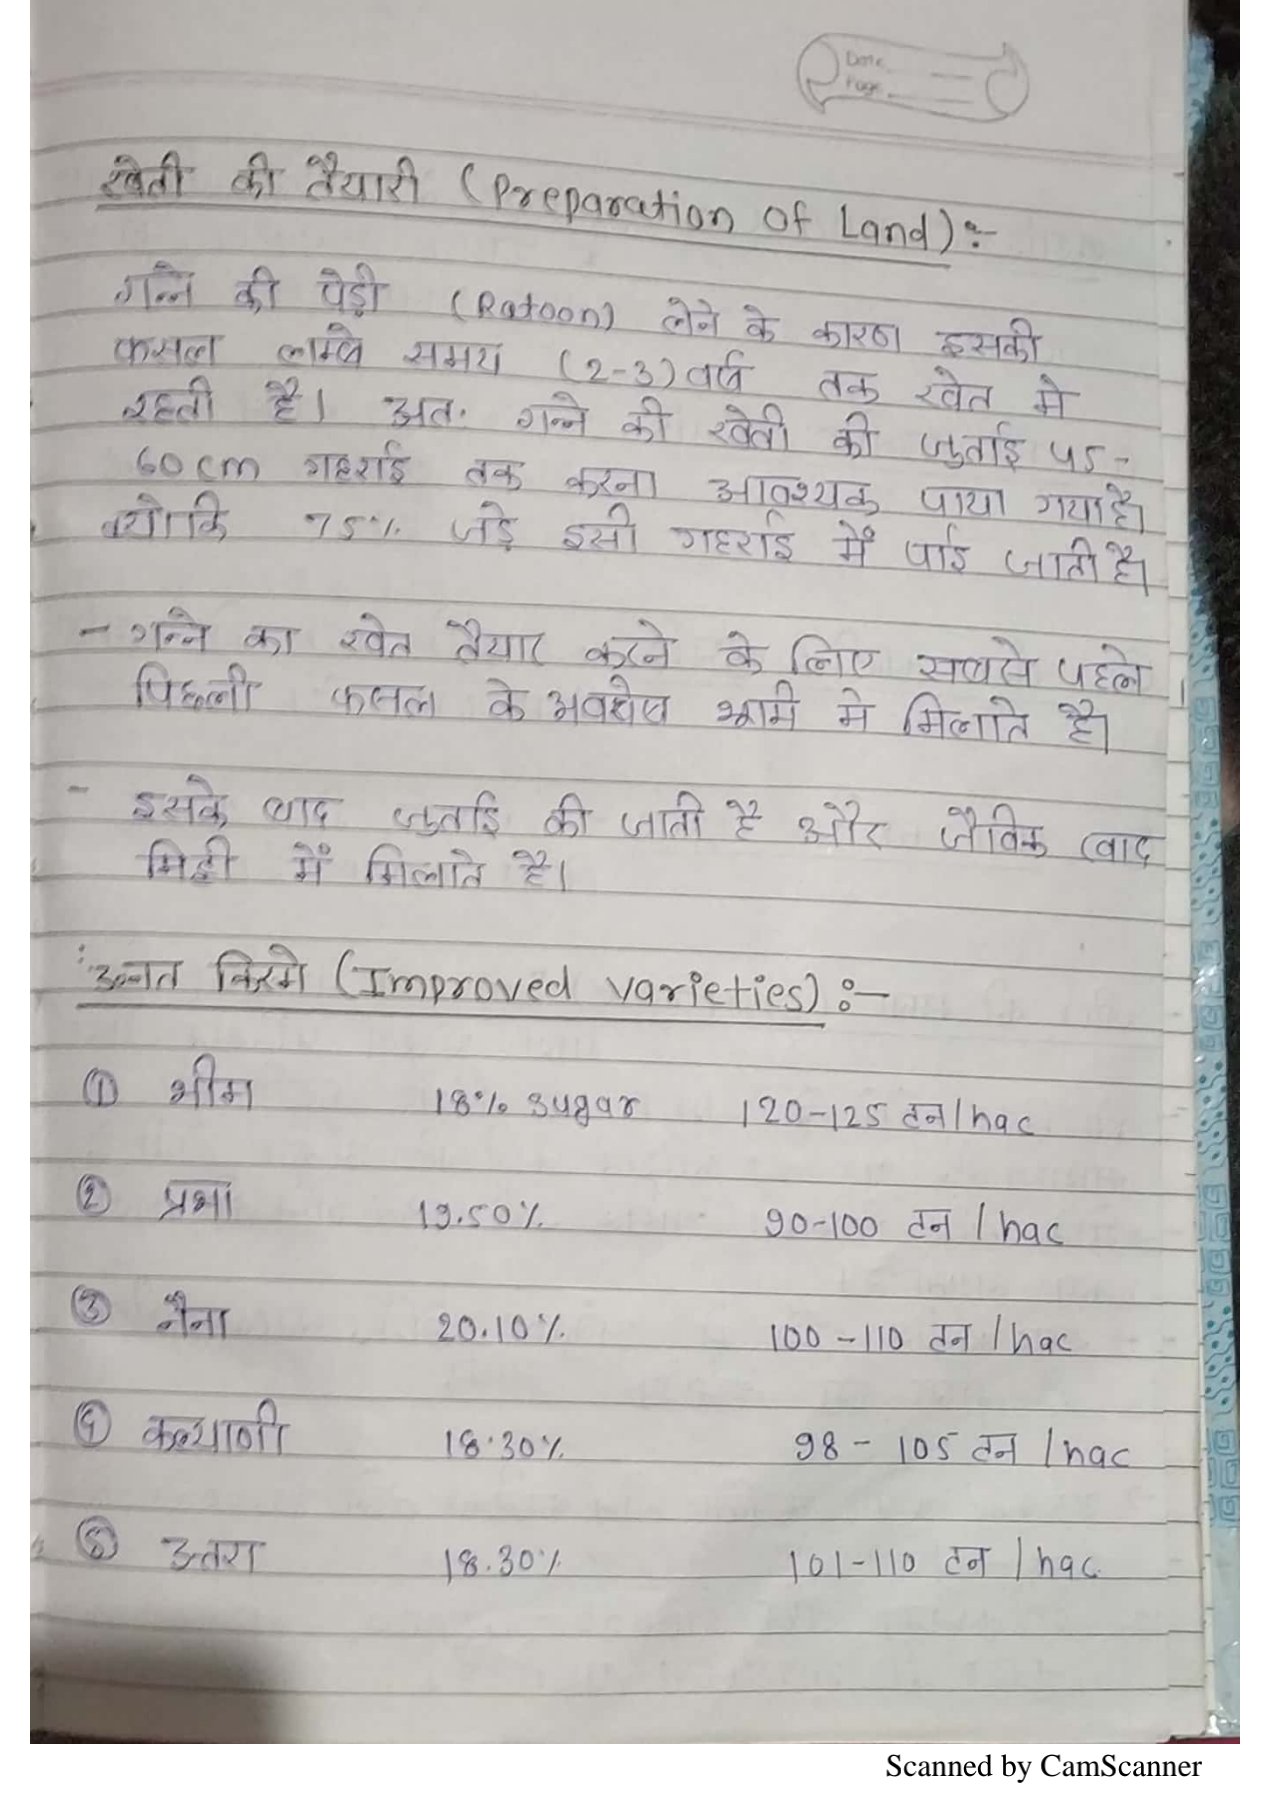 Date
Page
खेती की तैयारी (Preparation of Land):-
गन्ने की पेड़ी (Ratoon) लेने के कारण इसकी
फसल लम्बे समय (2-3) वर्ष तक खेत मे
रहती है। अतः गन्ने की खेती की जुताई 45-
60 cm गहराई तक करना आवश्यक पाया गया है।
क्योकि 75% जड़े इसी गहराई में पाई जाती है।
- गन्ने का खेत तैयार करने के लिए सबसे पहले
पिछली फसल के अवशेष भूमि मे मिलाते है।
- इसके बाद जुताई की जाती है और जैविक खाद
मिट्टी में मिलाते है।
उन्नत किस्मे (Improved varieties):-
① भीम 18% sugar 120-125 टन/hac
② प्रभा 19.50% 90-100 टन/hac
③ नैना 20.10% 100-110 टन/hac
④ कल्याणी 18.30% 98-105 टन/hac
⑤ उतरा 18.30% 101-110 टन/hac
Scanned by CamScanner